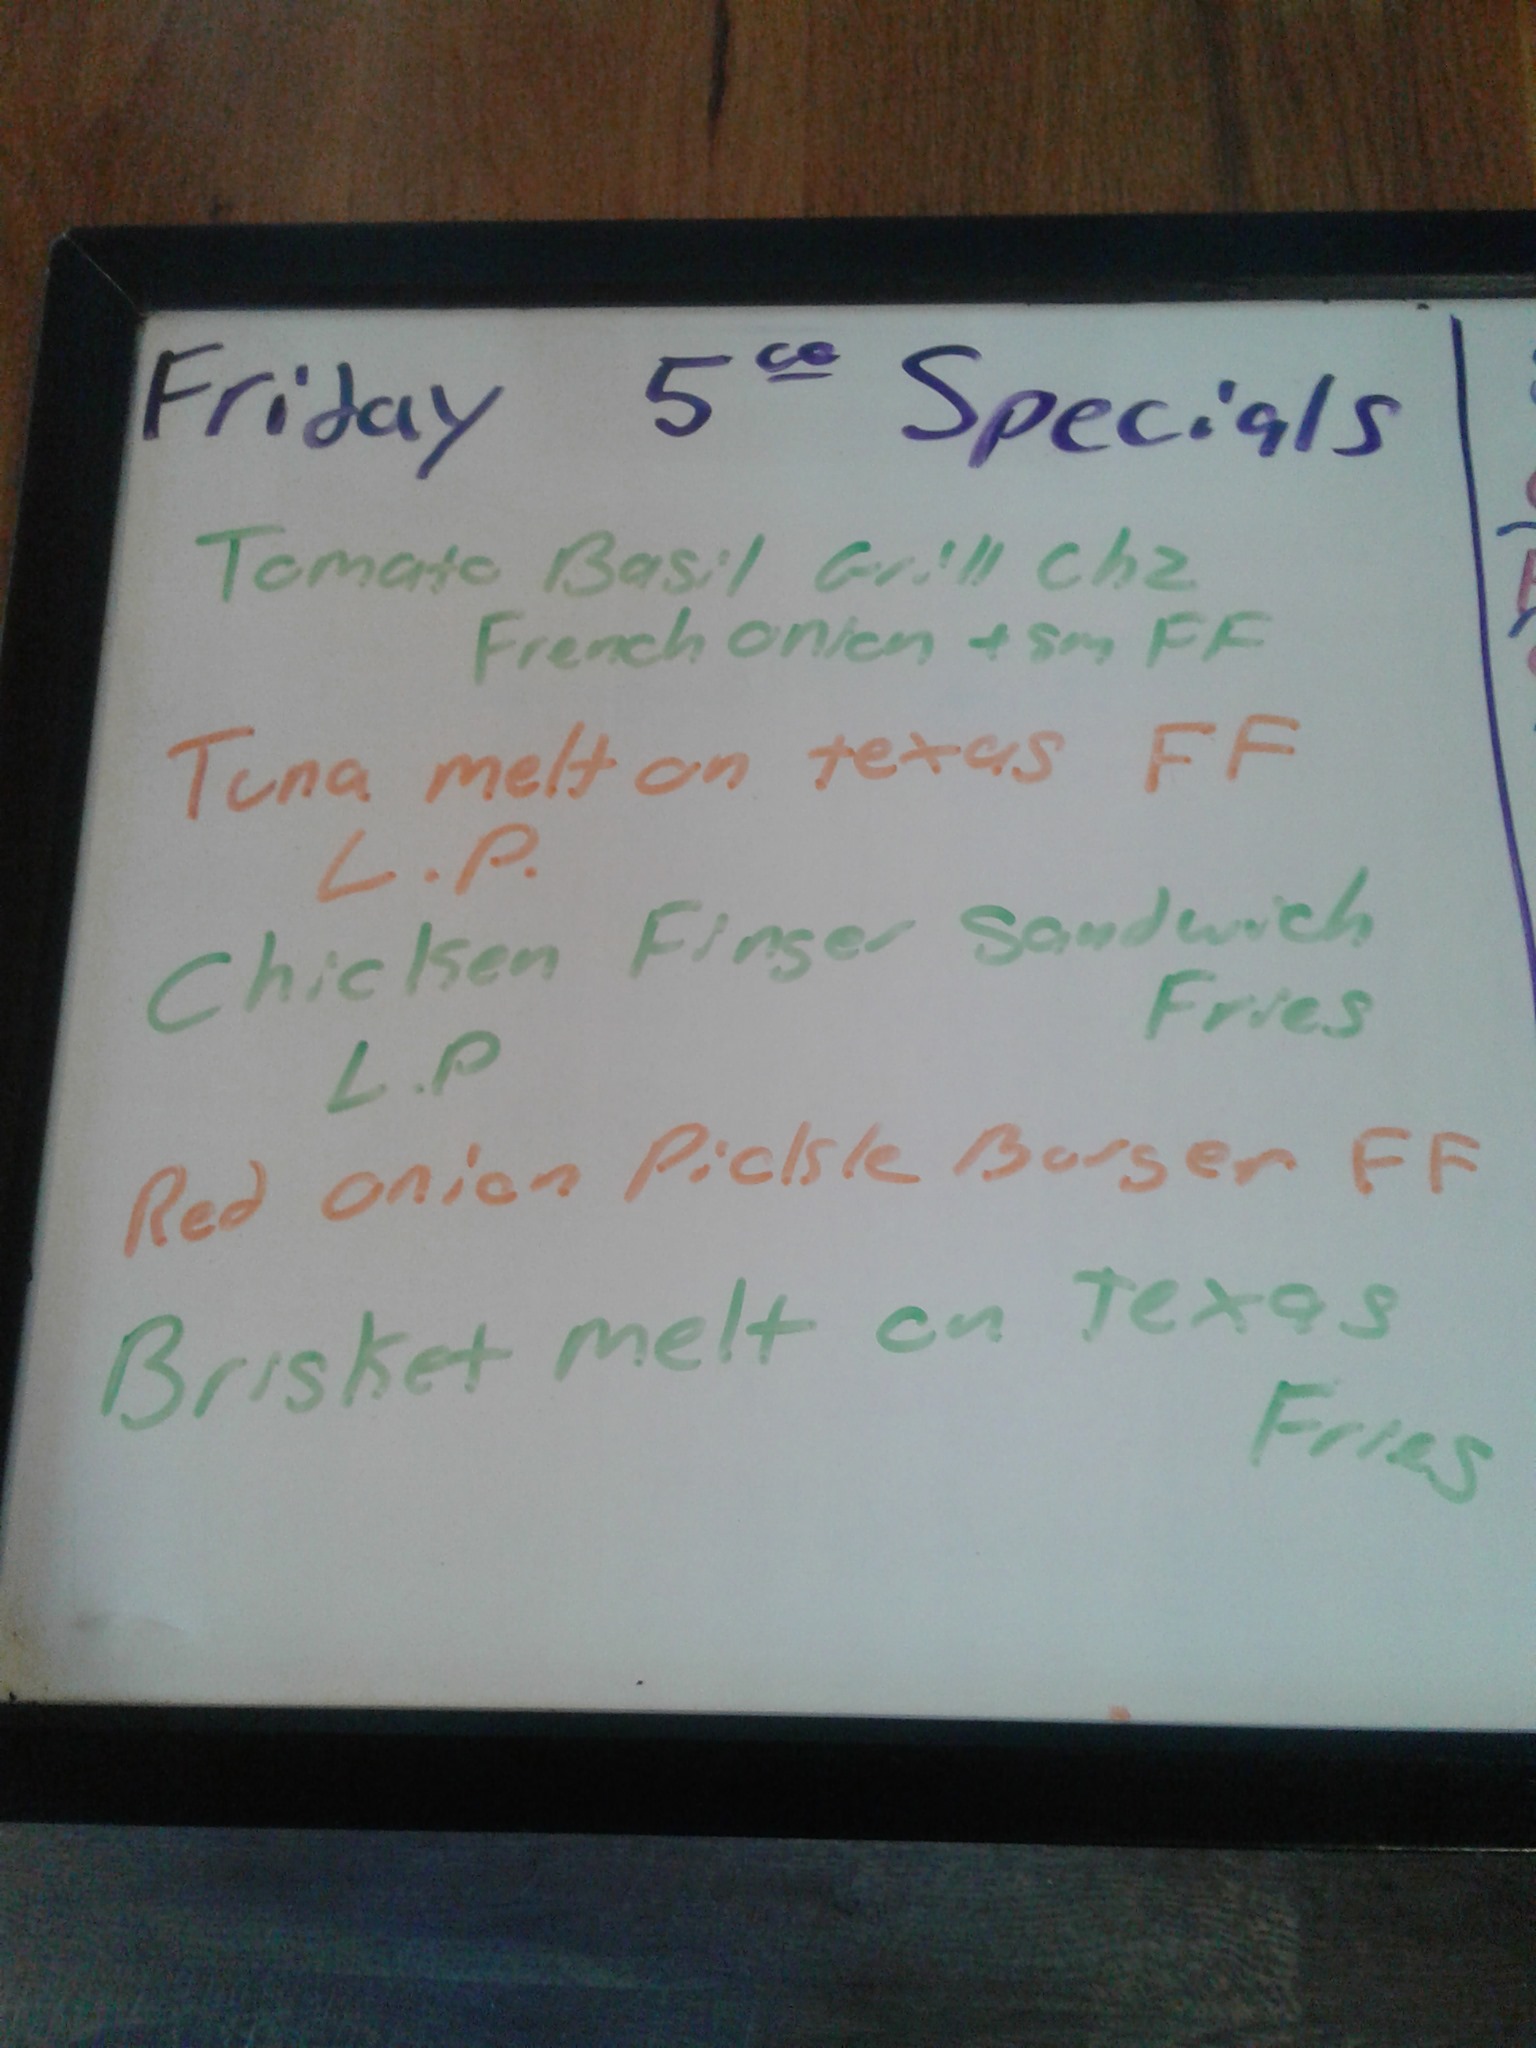 Friday 5°° Specials
Tomato Basil Grill Chz
French onion + sm FF
Tuna melt on texas FF
L.P.
Chicken Finger Sandwich
Fries
L.P
Red onion Pickle Burger FF
Brisket melt on Texas
Fries